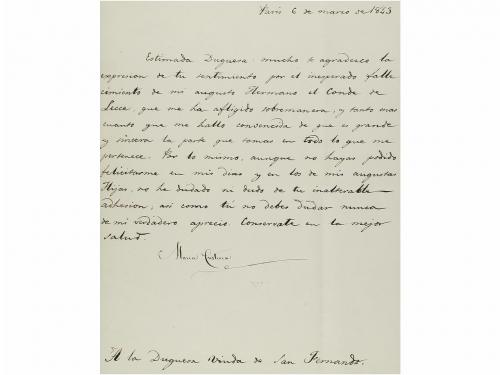 Paris 6 de marzo de 1843
Estimada Duquesa: mucho te agradezco la
expresion de tu sentimiento por el inesperado falle
cimiento de mi augusto Hermano el Conde de
Lecce, que me ha afligido sobremanera, y tanto mas
cuanto que me hallo convencida de que es grande
y sincera la parte que tomas en todo lo que me
pertenece. Por lo mismo, aunque no hayas podido
felicitarme en mis dias y en los de mis augustas
Hijas, no he dudado ni dudo de tu inalterable
adhesion, asi como tú no debes dudar nunca
de mi verdadero aprecio. Conservate en la mejor
salud.
Maria Cristina
A la Duquesa Viuda de San Fernando.